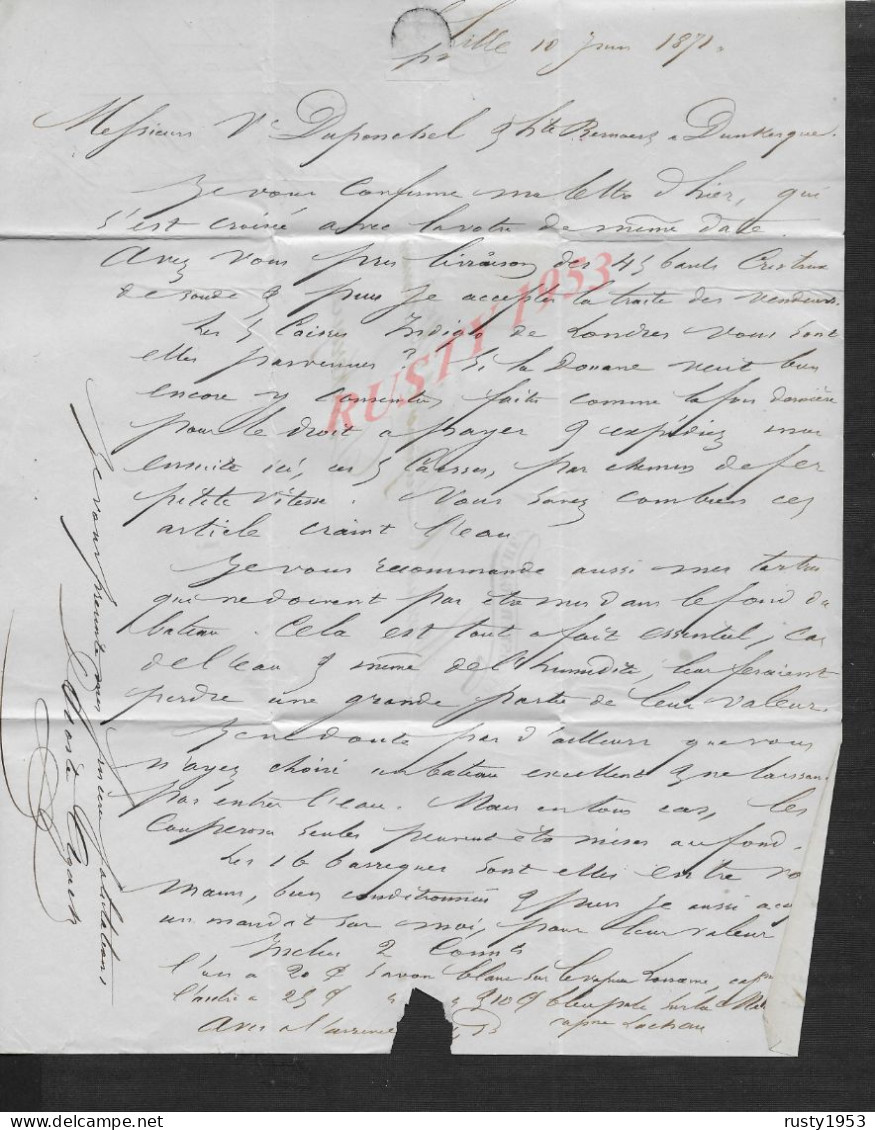 Lille 10 juin 1871.
Messieurs Vve Duponchel & hte Bernaert a Dunkerque.
Je vous confirme ma lettre d'hier, qui
s'est croisée avec la votre de même date.
Avez vous pris livraison des 45 barils Cristaux
de soude & puis je accepter la traite des vendeurs.
Les 5 Caisses Indigo de Londres vous sont
elles parvenues? Si la Douane veut bien
encore y consentir faites comme la fois dernière
pour le droit a payer & expédiez moi
ensuite ici, ces 5 Caisses, par chemin de fer
petite vitesse. Vous savez combien cet
article craint l'eau
Je vous recommande aussi mes tartres
qui ne doivent pas être mis dans le fond du
bateau. Cela est tout a fait essentiel, car
de l'eau & même de l'humidité, leur feraient
perdre une grande partie de leur valeur.
Je ne doute pas d'ailleurs que vous
n'ayez choisi un bateau excellent & ne laissant
pas entrer l'eau. Mais en tous cas, les
Couperoses seules peuvent être mises au fond.
Les 16 barriques sont elles entre vos
mains, bien conditionnées & puis je aussi
un mandat sur moi, pour leur valeur
Inclus 2 Connts
l'un a 20 savon blanc sur le vapeur Lorraine, capne
l'autre a 25 " " & 10 sur la
Avis capne
Je vous présente mes sincères salutations
RUSTY 1953
delcampe.net
rusty1953